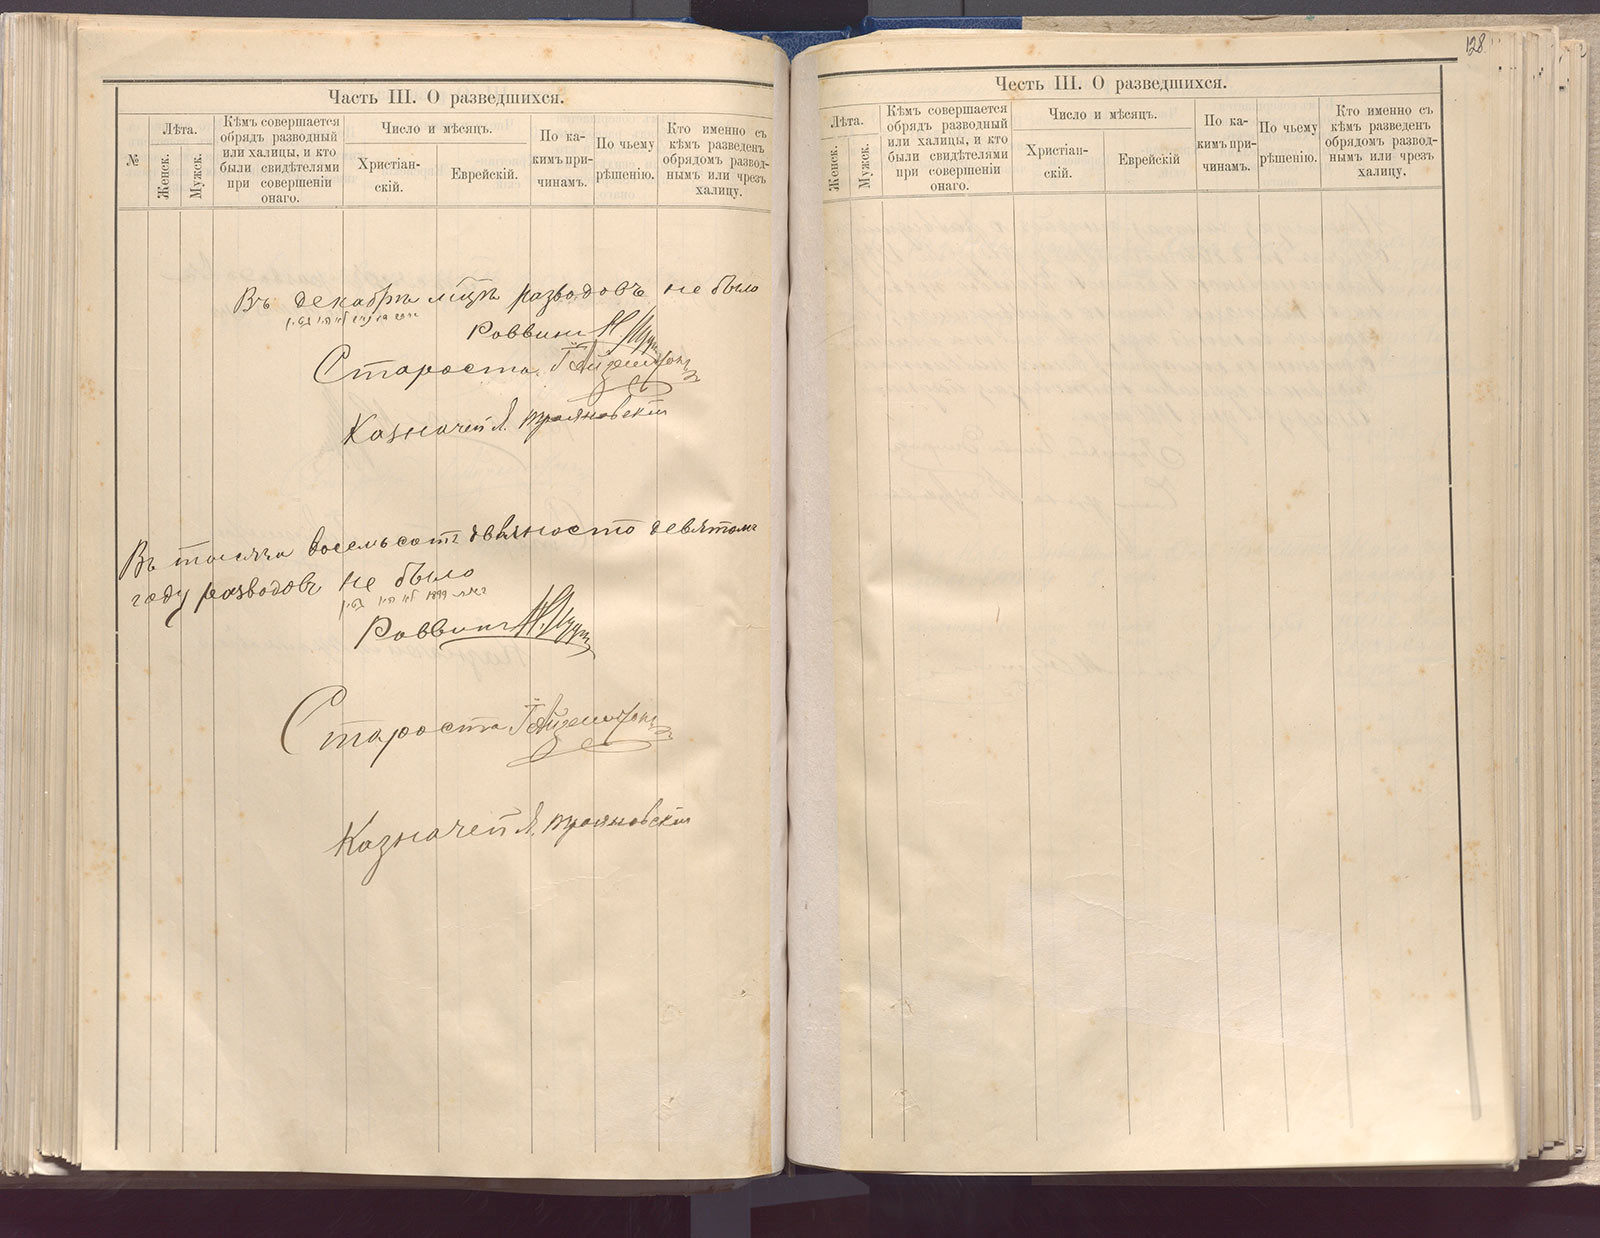 Часть III. О разведшихся.
№
Лѣта.
Женск.
Мужск.
Кѣмъ совершается
обрядъ разводный
или халицы, и кто
были свидѣтелями
при совершеніи
онаго.
Число и мѣсяцъ.
Христіан-
скій.
Еврейскій.
По ка-
кимъ при-
чинамъ.
По чьему
рѣшенію.
Кто именно съ
кѣмъ разведенъ
обрядомъ развод-
нымъ или чрезъ
халицу.
Въ декабрѣ мцѣ разводовъ не было
Раввинъ
Староста
Казначей
Въ тысяча восемьсотъ девяносто девятомъ
году разводовъ не было
1899
Раввинъ
Староста
Казначей
128
Честь III. О разведшихся.
Лѣта.
Женск.
Мужск.
Кѣмъ совершается
обрядъ разводный
или халицы, и кто
были свидѣтелями
при совершеніи
онаго.
Число и мѣсяцъ.
Христіан-
скій.
Еврейскій
По ка-
кимъ при-
чинамъ.
По чьему
рѣшенію.
Кто именно съ
кѣмъ разведенъ
обрядомъ развод-
нымъ или чрезъ
халицу.